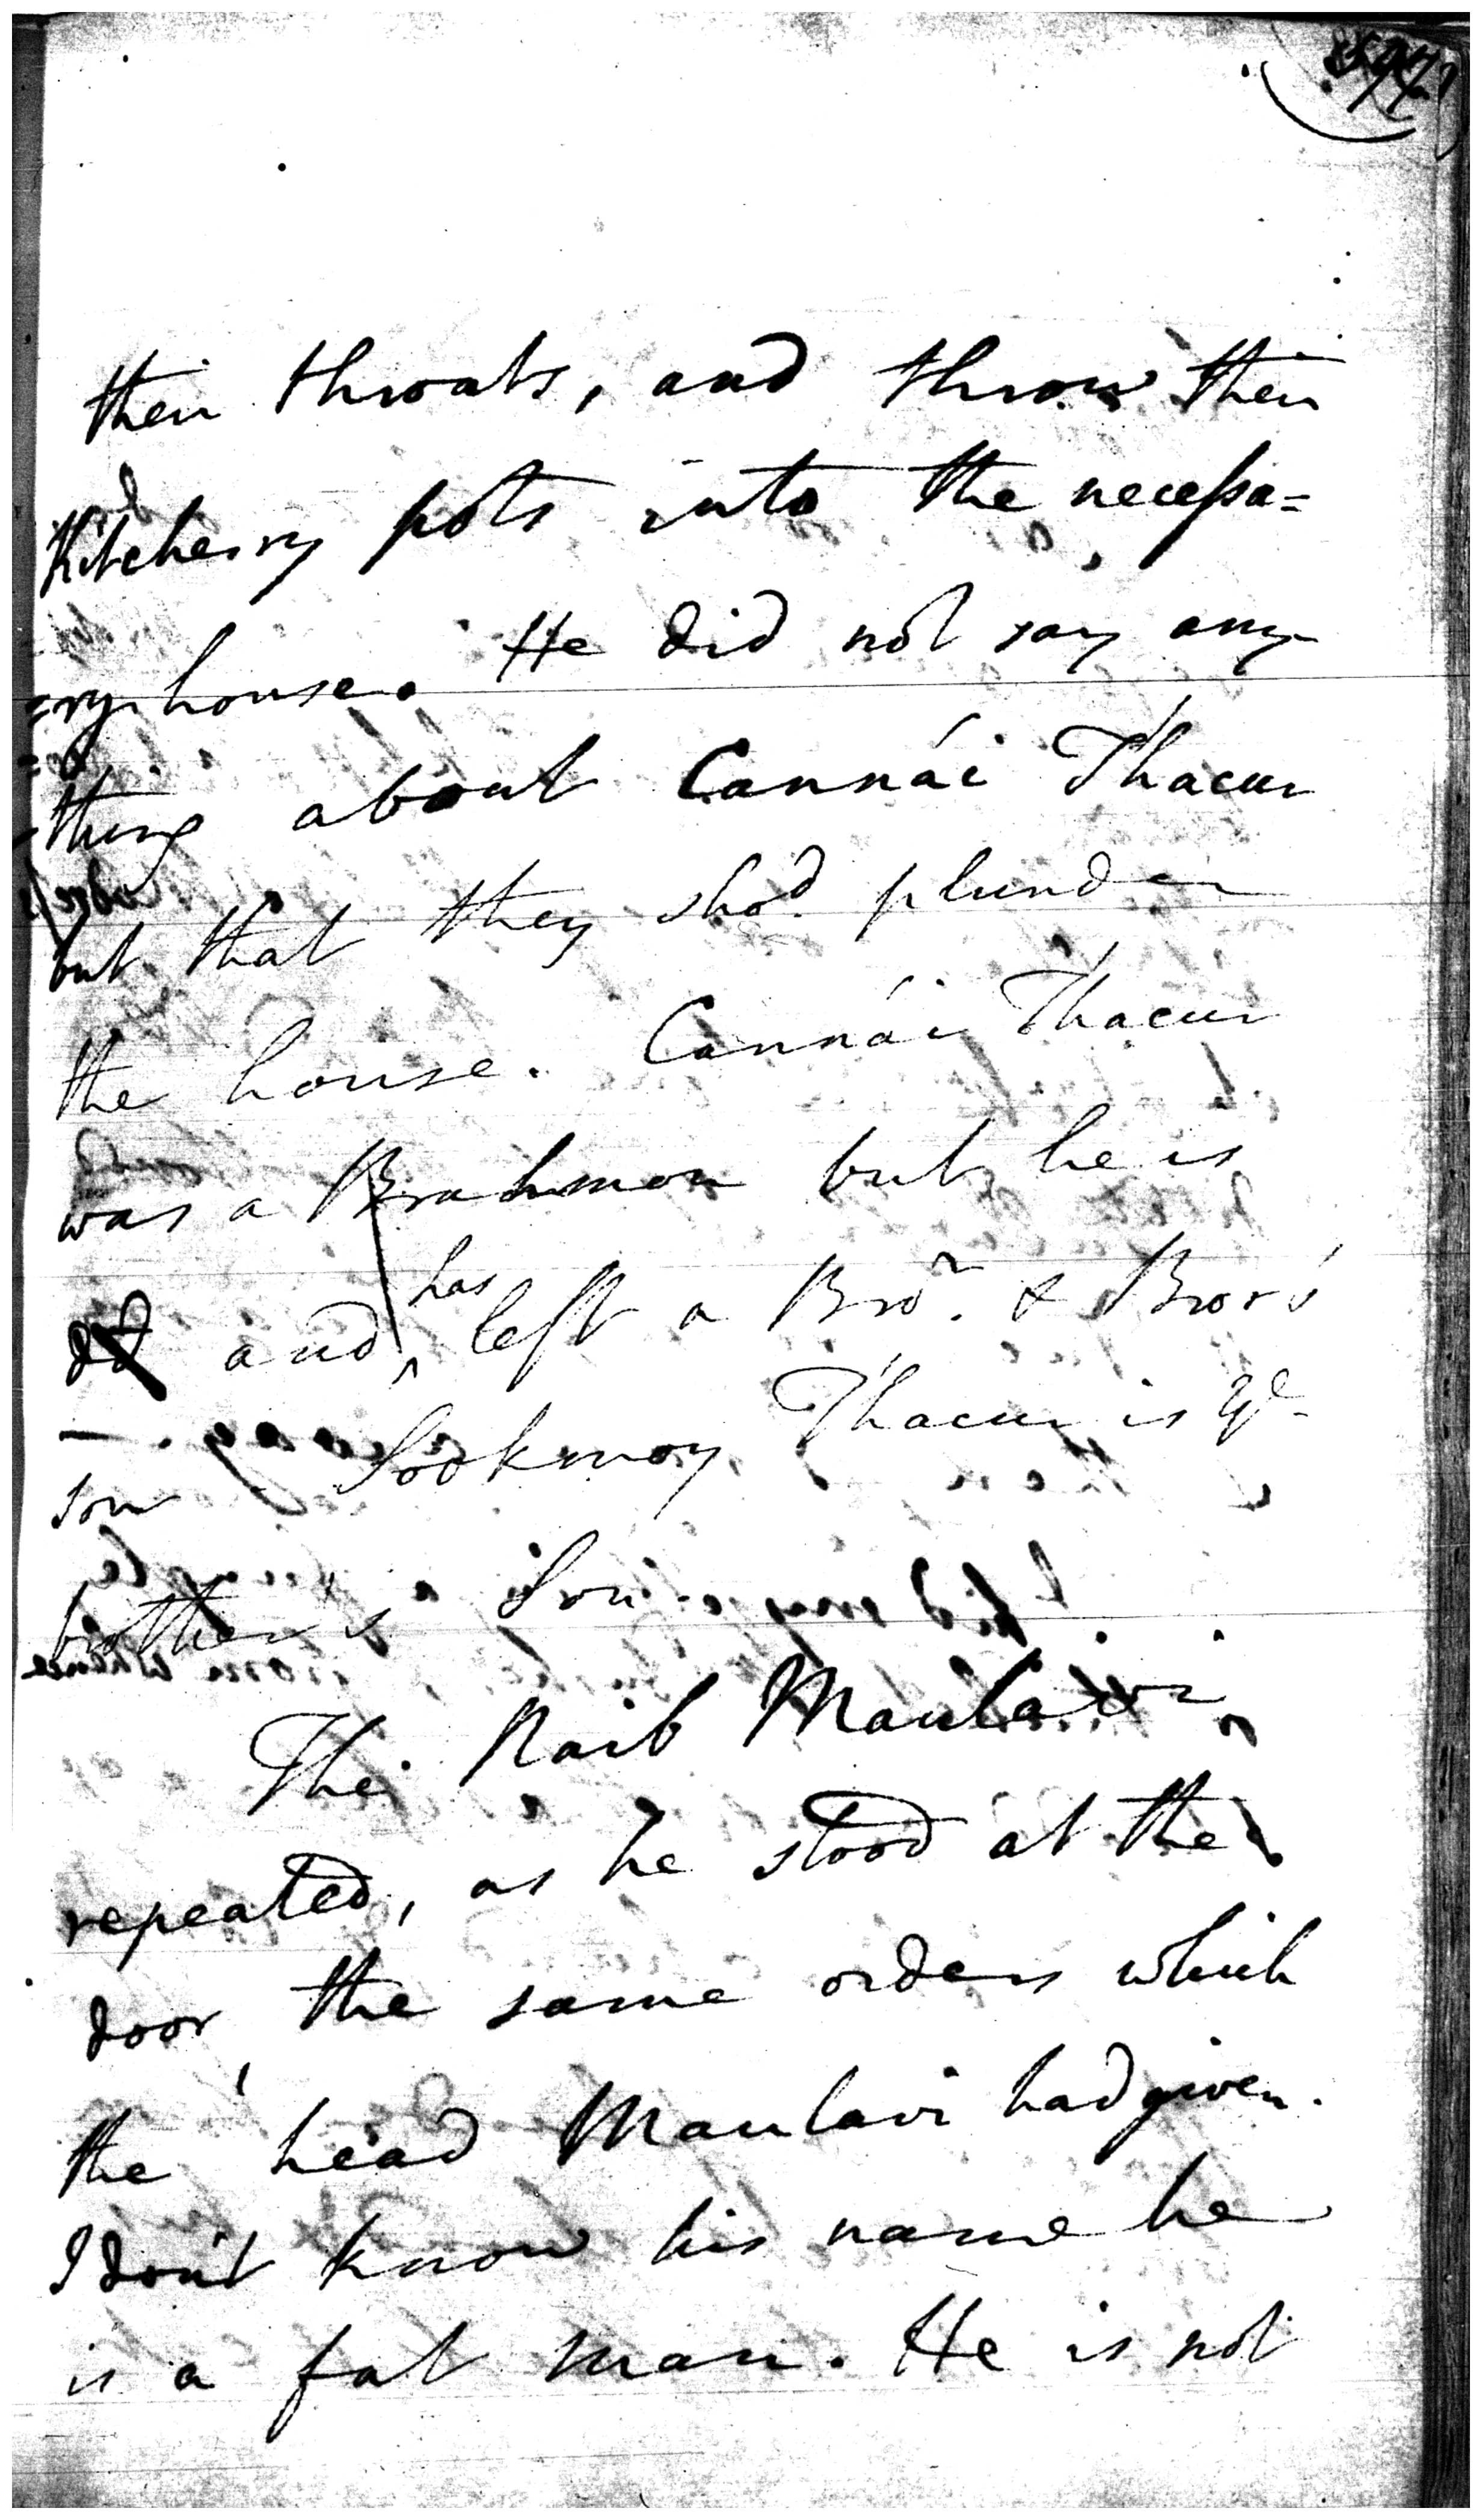 their throats, and throw their
Kitcherry pots into the necessa=
=ry house. He did not say any
=thing about Cannái Thacur
but that they sho.d plunder
the house. Cannái Thacur
was a Brahmon but he is
dd and has left a Bro.r & Bro.rs
son - Sookmoy Thacur is ye
brother's son.
The Naib Maulavi
repeated, as he stood at the
door, the same orders which
the head Maulavi had given.
I don't know his name he
is a fat man. He is not